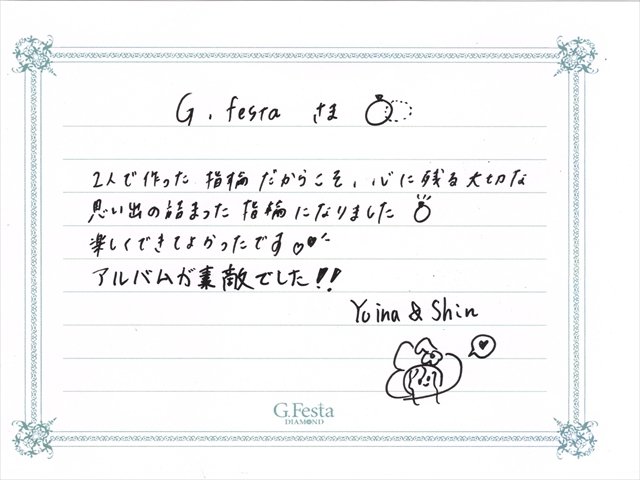 G. festa さま
2人で作った指輪だからこそ、心に残る大切な
思い出の詰まった指輪になりました
楽しくできてよかったです♡♥
アルバムが素敵でした!!
Yuina & Shin
♥
G.Festa
DIAMOND